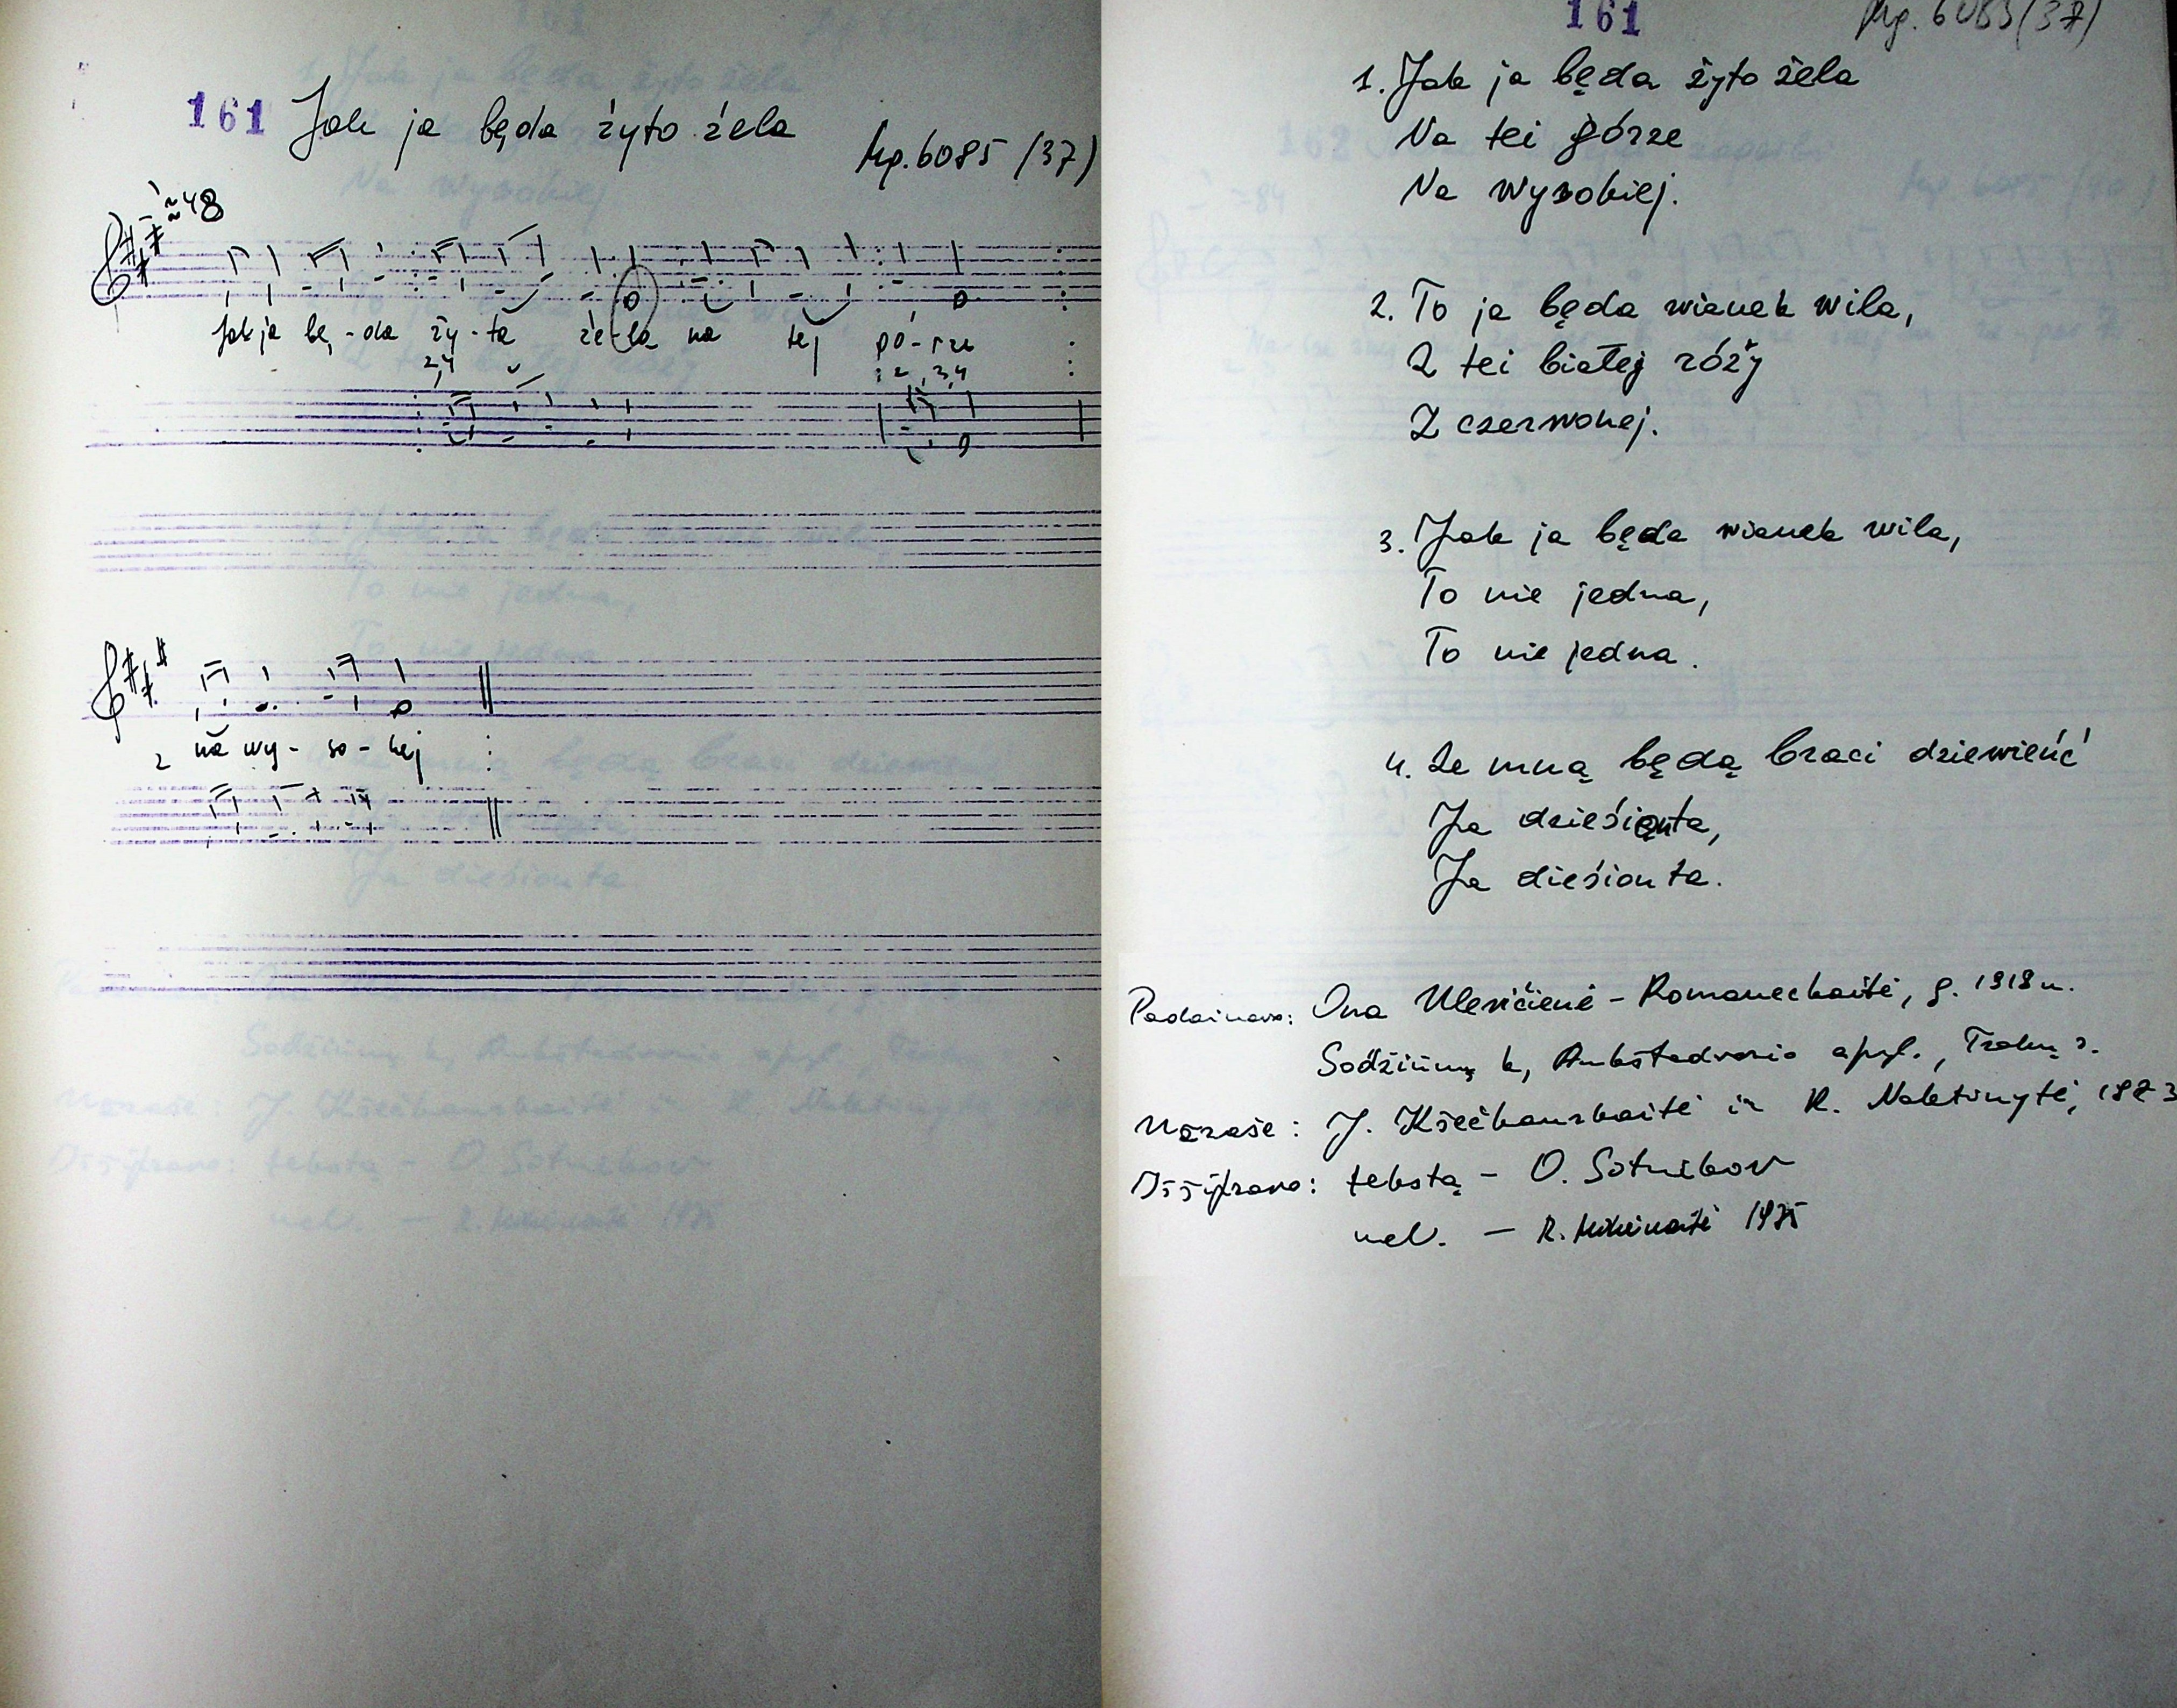 161 Jak ja będa żyto żela
Mg. 6085 (37)
≈ 48
Jak ja bę-da ży-ta że-la na tej gó-rze
2,4
2, 3,4
na wy-so-kej
2
161
Mg. 6085 (37)
1. Jak ja będa żyto żela
Na tei górze
Na wysokiej.
2. To ja będa wianek wila,
Z tei białej róży
Z czerwonej.
3. Jak ja będa wianek wila,
To nie jedna,
To nie jedna.
4. Ze mną będą braci dziewieńć
Ja dziesionta,
Ja diesionta.
Padainavo: Ona Ulevičienė - Romaneckaitė, g. 1918 m.
Sodžiūnų k, Aukštadvario apyl., Trakų r.
Užrašė: J. Kšečkauskaitė ir R. Maletinytė, 1973
Iššifravo: tekstą - O. Sotnikov
mel. —  1975